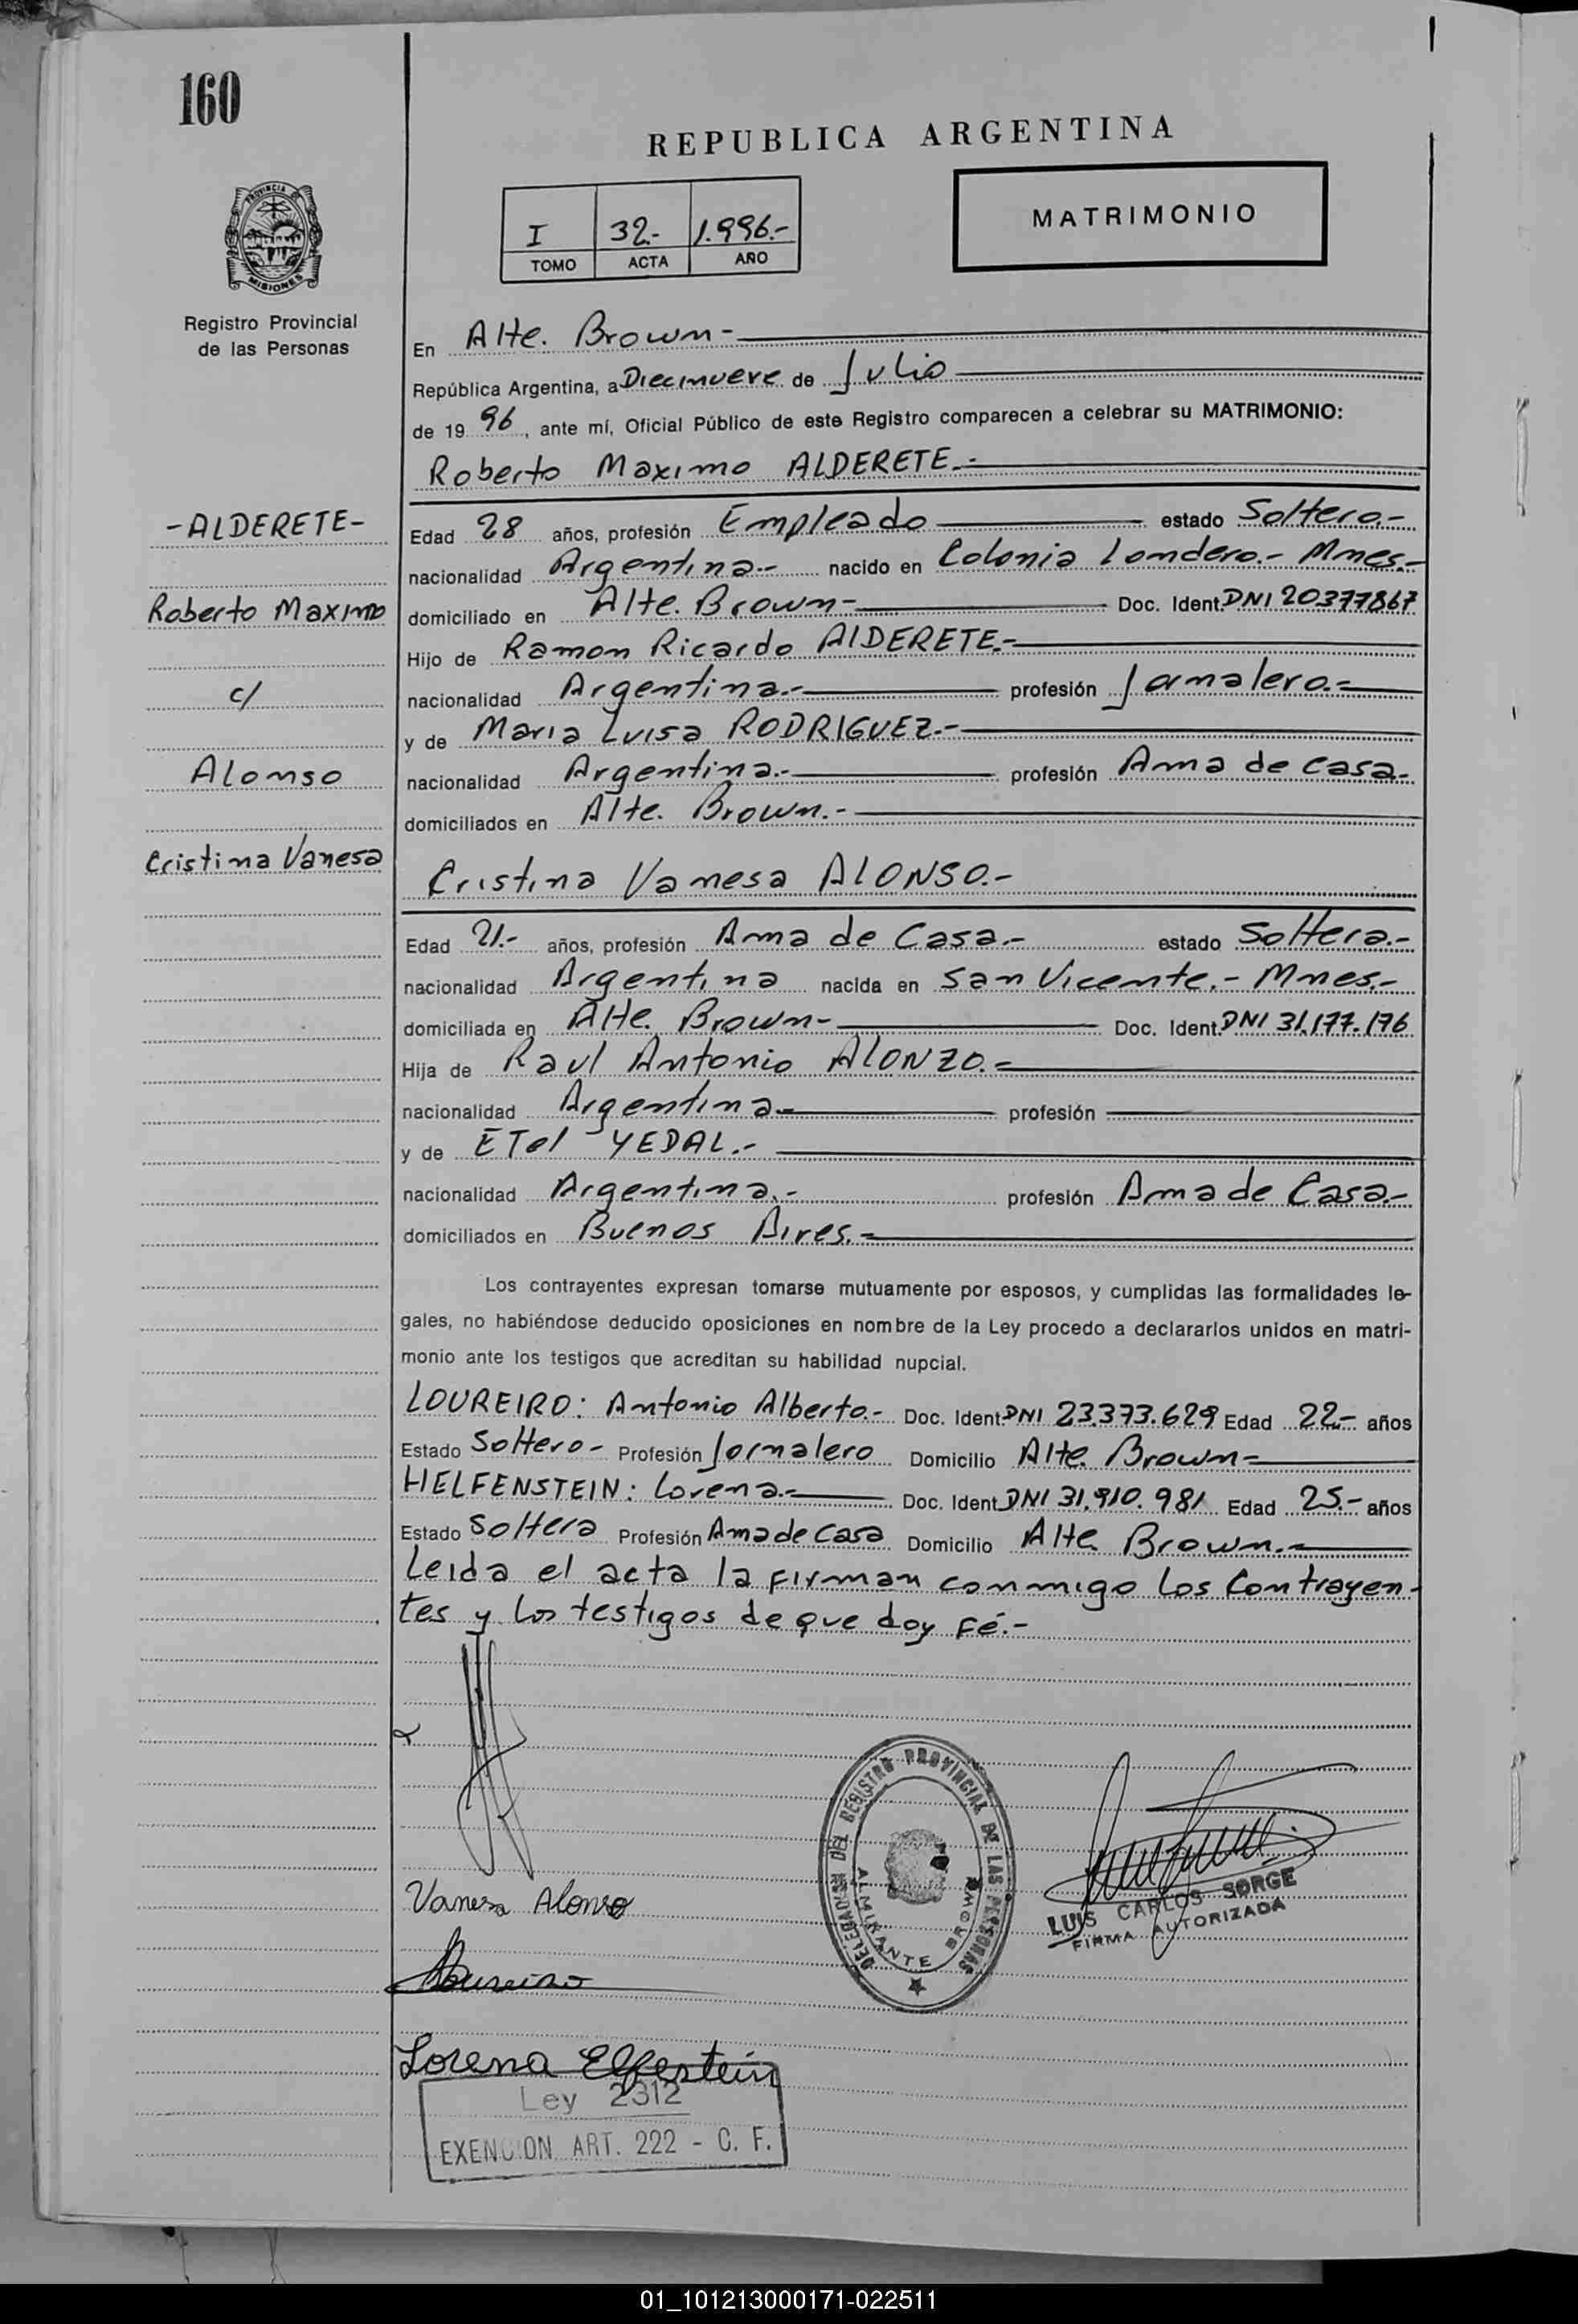 160
REPUBLICA ARGENTINA
I 32.- 1.996.-
TOMO ACTA AÑO
MATRIMONIO
PROVINCIA DE
MISIONES
Registro Provincial
de las Personas
En Alte. Brown-
República Argentina, a Diecinueve de Julio
de 19 96, ante mí, Oficial Público de este Registro comparecen a celebrar su MATRIMONIO:
Roberto Maximo ALDERETE.-
-ALDERETE-
Roberto Maximo
c/
Alonso
Cristina Vanesa
Edad 28 años, profesión Empleado estado Soltero.-
nacionalidad Argentina.- nacido en Colonia Londero.- Mnes.-
domiciliado en Alte. Brown- Doc. Ident. DNI 20377867
Hijo de Ramon Ricardo AlDERETE.-
nacionalidad Argentina.- profesión Jornalero.-
y de Maria Luisa RODRIGUEZ.-
nacionalidad Argentina.- profesión Ama de casa.-
domiciliados en Alte. Brown.-
Cristina Vanesa ALONSO.-
Edad 21.- años, profesión Ama de Casa.- estado Soltera.-
nacionalidad Argentina nacida en San Vicente.- Mnes.-
domiciliada en Alte. Brown- Doc. Ident. DNI 31.177.176
Hija de Raul Antonio AlONZO.-
nacionalidad Argentina.- profesión
y de ETel YEDAL.-
nacionalidad Argentina.- profesión Ama de Casa.-
domiciliados en Buenos Aires.-
Los contrayentes expresan tomarse mutuamente por esposos, y cumplidas las formalidades le-
gales, no habiéndose deducido oposiciones en nombre de la Ley procedo a declararlos unidos en matri-
monio ante los testigos que acreditan su habilidad nupcial.
LOUREIRO: Antonio Alberto.- Doc. Ident. DNI 23.373.629 Edad 22.- años
Estado Soltero- Profesión Jornalero Domicilio Alte. Brown-
HELFENSTEIN: Lorena.- Doc. Ident. DNI 31.910.981 Edad 25.- años
Estado Soltera Profesión Ama de Casa Domicilio Alte. Brown.-
Leida el acta la firman conmigo los Contrayen-
tes y los testigos de que doy Fé.-
DELEGACION DEL REGISTRO PROVINCIAL DE LAS PERSONAS
ALMIRANTE BROWN
LUIS CARLOS SORGE
FIRMA AUTORIZADA
Vanesa Alonso
Loureiro
Lorena Elfestein
Ley 2312
EXENCION ART. 222 - C. F.
01_101213000171-022511